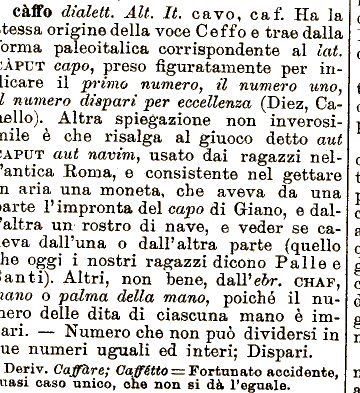 càffo dialett. Alt. It. cavo, caf. Ha la
stessa origine della voce Ceffo e trae dalla
forma paleoitalica corrispondente al lat.
CÀPUT capo, preso figuratamente per in-
dicare il primo numero, il numero uno,
il numero dispari per eccellenza (Diez, Ca-
nello). Altra spiegazione non inverosi-
mile è che risalga al giuoco detto aut
CAPUT aut navim, usato dai ragazzi nel-
l'antica Roma, e consistente nel gettare
in aria una moneta, che aveva da una
parte l'impronta del capo di Giano, e dal-
l'altra un rostro di nave, e veder se ca-
deva dall'una o dall'altra parte (quello
che oggi i nostri ragazzi dicono Palle e
Santi). Altri, non bene, dall'ebr. CHAF,
mano o palma della mano, poiché il nu-
mero delle dita di ciascuna mano è im-
pari. — Numero che non può dividersi in
due numeri uguali ed interi; Dispari.
Deriv. Caffàre; Caffétto = Fortunato accidente,
quasi caso unico, che non si dà l'eguale.